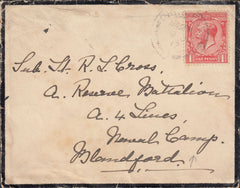 Sub. Lt. R. S. Cross,
A. Reserve Battalion
A. 4 Lines,
Naval Camp.
Blandford.